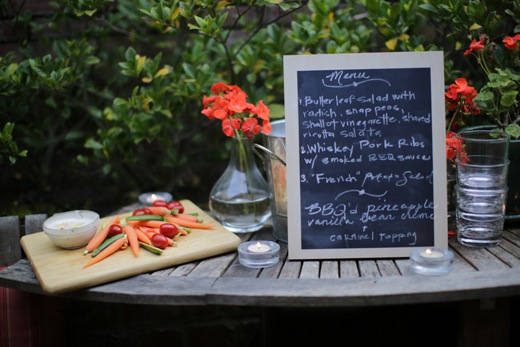 Menu
1. Butter leaf Salad with
radish, snap peas,
shallot vinegarette, shaved
ricotta salata
2. Whiskey Pork Ribs
w/ smoked BBQ sauce
3. "French" Potato Salad
BBQ'd pineapple
vanilla bean creme
+
caramel topping